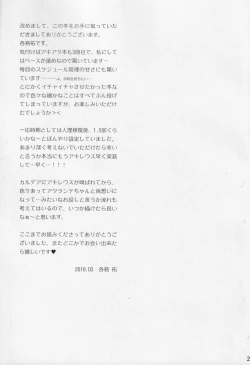 改めまして、この本をお手に取っていた
だきましてありがとうございます。
各務祐です。
気付けばアキアタ本も3冊目で、私にして
はペースが速めなので驚いています…
毎回のスケジュール管理の甘さにも驚い
ています……
とにかくイチャイチャさせたかった本な
ので色々な細かなことはすべてぶん投げ
てしまっていますが、お楽しみいただけ
たでしょうか><
一応時期としては人理修復後、1.5部くら
いかなーとぼんやり設定しているので、
あまり深く考えないでいただけたら幸い
と言うか本当にもうアキレウス早く実装
して…早く…！！！
カルデアにアキレウスが呼ばれてから、
良々あってアタランテちゃんと両想いに
なって…みたいなお話しと言うか流れも
考えてはいるので、いつか描けたら良い
なぁ～と思います。
ここまでお読みくださってありがとうご
ざいました、またどこかでお会い出来た
ら嬉しいです♥
2018.03　各務 祐
2